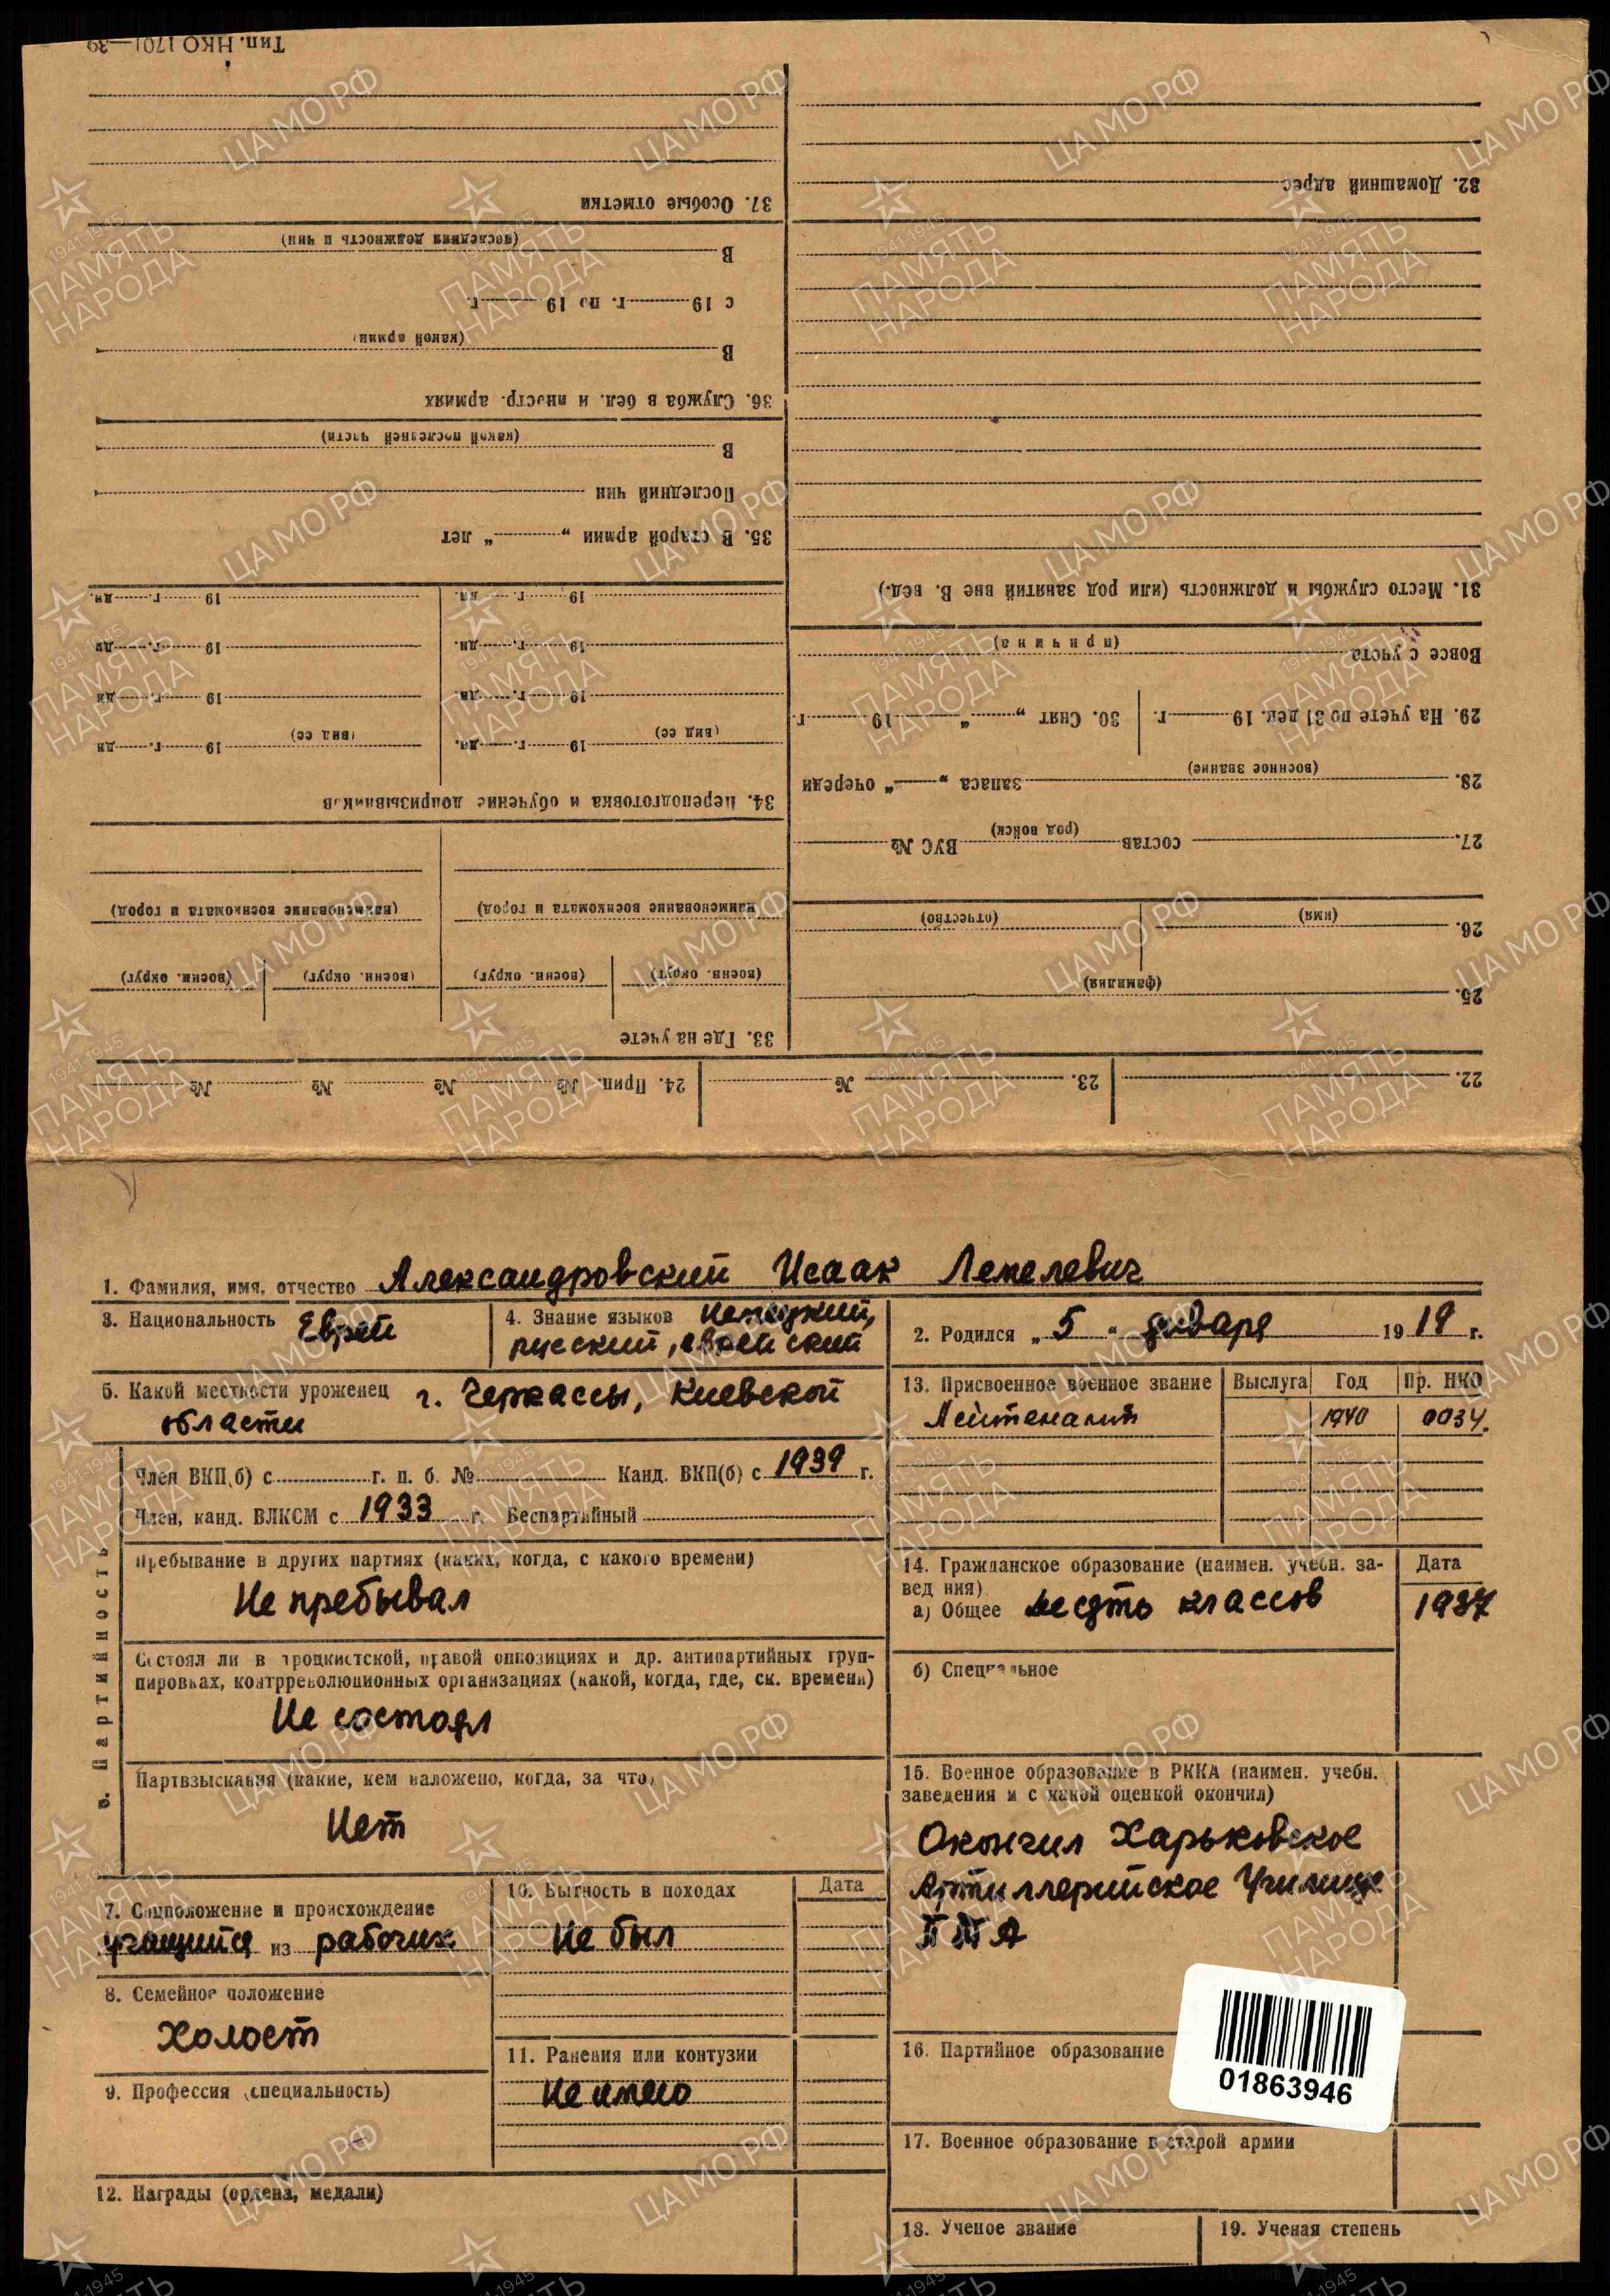 Тип. НКО 1701—39
32. Домашний адрес
37. Особые отметки
(последняя должность и чин)
В
с 19 г. по 19 г.
(какой армии)
В
36. Служба в бел. и иностр. армиях
(какой последней части)
В
Последний чин
35. В старой армии „ “ лет
31. Место службы и должность (или род занятий вне В. вед.)
19 г. дн. 19 г. дн.
19 г. дн. 19 г. дн
19 г. дн. 19 г. дн
(вид ее) 19 г. дн. (вид ее) 19 г. дн
34. Переподготовка и обучение допризывников
(причина)
Вовсе с учета
29. На учете по 31 дек. 19 г. 30. Снят „ “ 19 г.
(военное звание)
28. запаса „ “ очереди
(род войск)
27. состав ВУС №
(наименование военкомата и город) (наименование военкомата и город)
(имя) (отчество)
26.
(военн. округ) (военн. округ) (военн. округ) (военн. округ)
(фамилия)
25.
33. Где на учете
22. 23. № 24. Прип. № № № №
1. Фамилия, имя, отчество Александровский Исаак Лемелевич
3. Национальность Еврей
4. Знание языков немецкий,
русский, еврейский
2. Родился „ 5 “ января 19 19 г.
5. Какой местности уроженец г. Черкассы, Киевской
области
13. Присвоенное военное звание Выслуга Год Пр. НКО
Лейтенант 1940 0034.
6. Партийность
Член ВКП(б) с г. п. б. № Канд. ВКП(б) с 1939 г.
Член, канд. ВЛКСМ с 1933 г. Беспартийный
Пребывание в других партиях (каких, когда, с какого времени)
Не пребывал
Состоял ли в троцкистской, правой оппозициях и др. антипартийных груп-
пировках, контрреволюционных организациях (какой, когда, где, ск. времени)
Не состоял
Партвзыскания (какие, кем наложено, когда, за что)
Нет
14. Гражданское образование (наимен. учебн. за- Дата
ведения)
а) Общее десять классов 1937
б) Специальное
15. Военное образование в РККА (наимен. учебн.
заведения и с какой оценкой окончил)
Окончил Харьковское
Артиллерийское Училище
ПТА
7. Соцположение и происхождение
учащийся из рабочих
8. Семейное положение
Холост
9. Профессия (специальность)
10. Бытность в походах Дата
Не был
11. Ранения или контузии
Не имею
12. Награды (ордена, медали)
16. Партийное образование
01863946
17. Военное образование в старой армии
18. Ученое звание 19. Ученая степень
ЦАМО.РФ
1941-1945
ПАМЯТЬ
НАРОДА